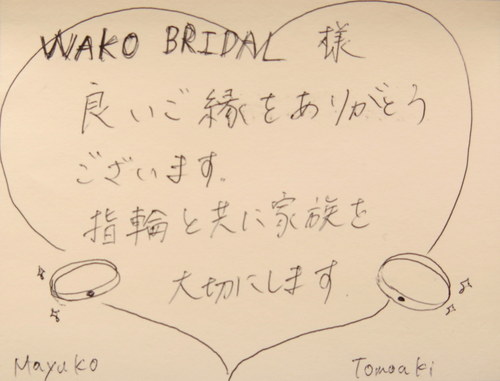 WAKO BRIDAL 様
良いご縁をありがとう
ございます.
指輪と共に家族を
大切にします.
Mayuko
Tomoaki